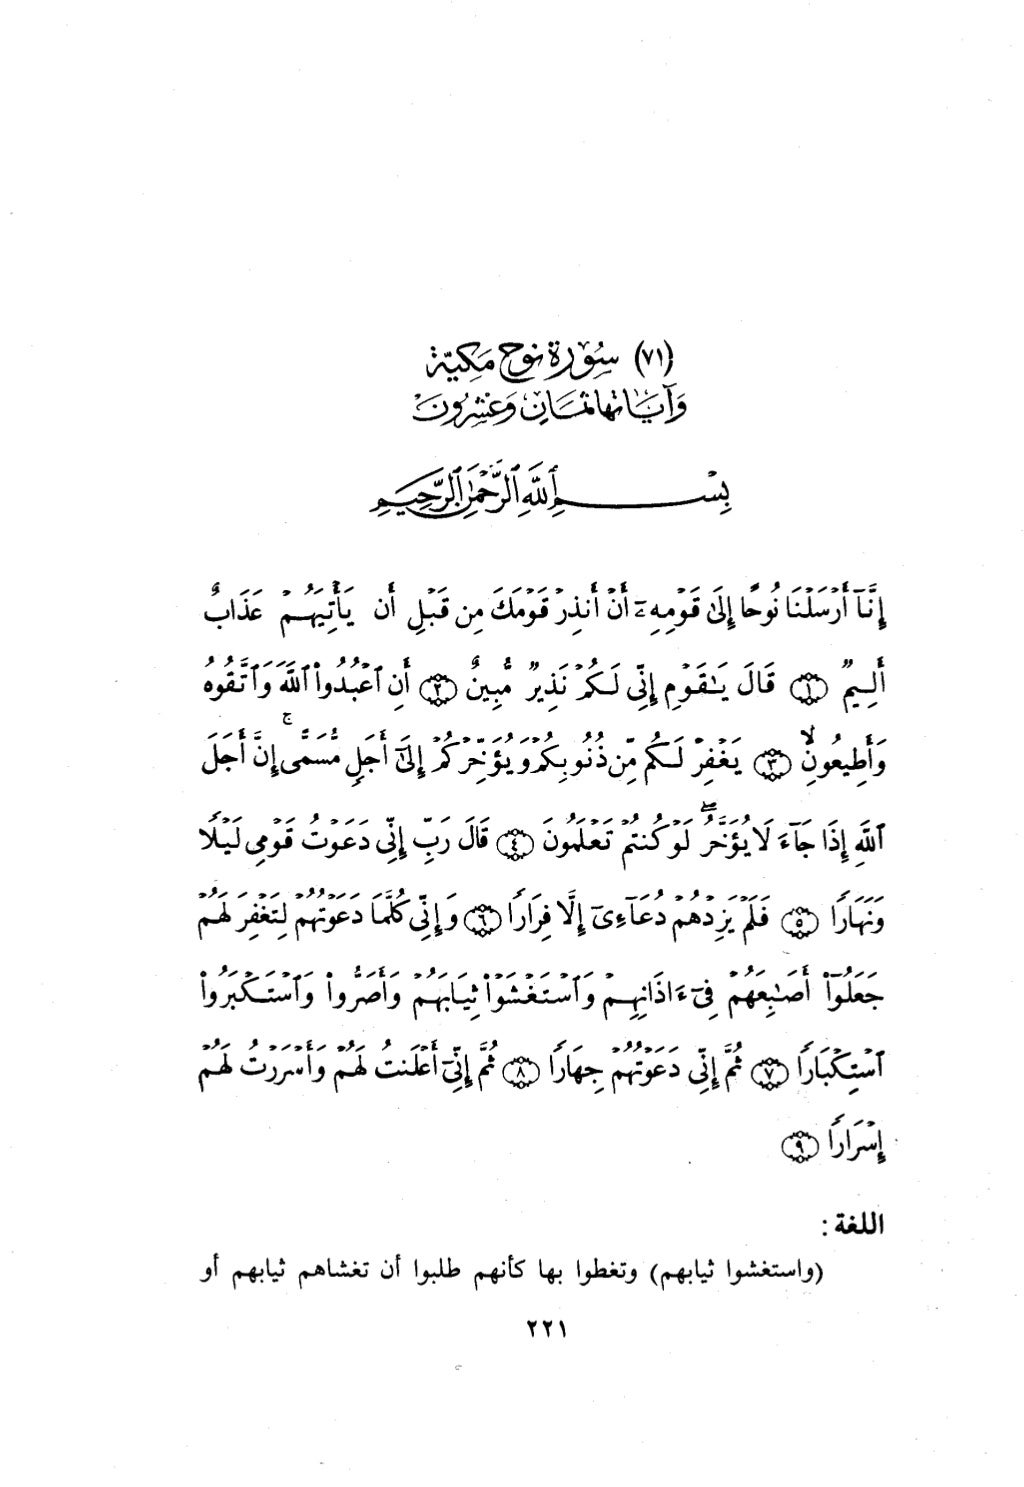 (٧١) سُورَة نُوح مَكِيَّة
وَآيَاتهَا ثَمَانٍ وَعِشْرُونَ
بِسْمِ ٱللَّهِ ٱلرَّحْمَٰنِ ٱلرَّحِيمِ
إِنَّآ أَرْسَلْنَا نُوحًا إِلَىٰ قَوْمِهِۦٓ أَنْ أَنذِرْ قَوْمَكَ مِن قَبْلِ أَن يَأْتِيَهُمْ عَذَابٌ
أَلِيمٌ ﴿١﴾ قَالَ يَٰقَوْمِ إِنِّى لَكُمْ نَذِيرٌ مُّبِينٌ ﴿٢﴾ أَنِ ٱعْبُدُوا۟ ٱللَّهَ وَٱتَّقُوهُ
وَأَطِيعُونِ ﴿٣﴾ يَغْفِرْ لَكُم مِّن ذُنُوبِكُمْ وَيُؤَخِّرْكُمْ إِلَىٰٓ أَجَلٍ مُّسَمًّى ۚ إِنَّ أَجَلَ
ٱللَّهِ إِذَا جَآءَ لَا يُؤَخَّرُ ۖ لَوْ كُنتُمْ تَعْلَمُونَ ﴿٤﴾ قَالَ رَبِّ إِنِّى دَعَوْتُ قَوْمِى لَيْلًا
وَنَهَارًا ﴿٥﴾ فَلَمْ يَزِدْهُمْ دُعَآءِىٓ إِلَّا فِرَارًا ﴿٦﴾ وَإِنِّى كُلَّمَا دَعَوْتُهُمْ لِتَغْفِرَ لَهُمْ
جَعَلُوٓا۟ أَصَٰبِعَهُمْ فِىٓ ءَاذَانِهِمْ وَٱسْتَغْشَوْا۟ ثِيَابَهُمْ وَأَصَرُّوا۟ وَٱسْتَكْبَرُوا۟
ٱسْتِكْبَارًا ﴿٧﴾ ثُمَّ إِنِّى دَعَوْتُهُمْ جِهَارًا ﴿٨﴾ ثُمَّ إِنِّىٓ أَعْلَنتُ لَهُمْ وَأَسْرَرْتُ لَهُمْ
إِسْرَارًا ﴿٩﴾
اللغة :
(واستغشوا ثيابهم) وتغطوا بها كأنهم طلبوا أن تغشاهم ثيابهم أو
٢٢١